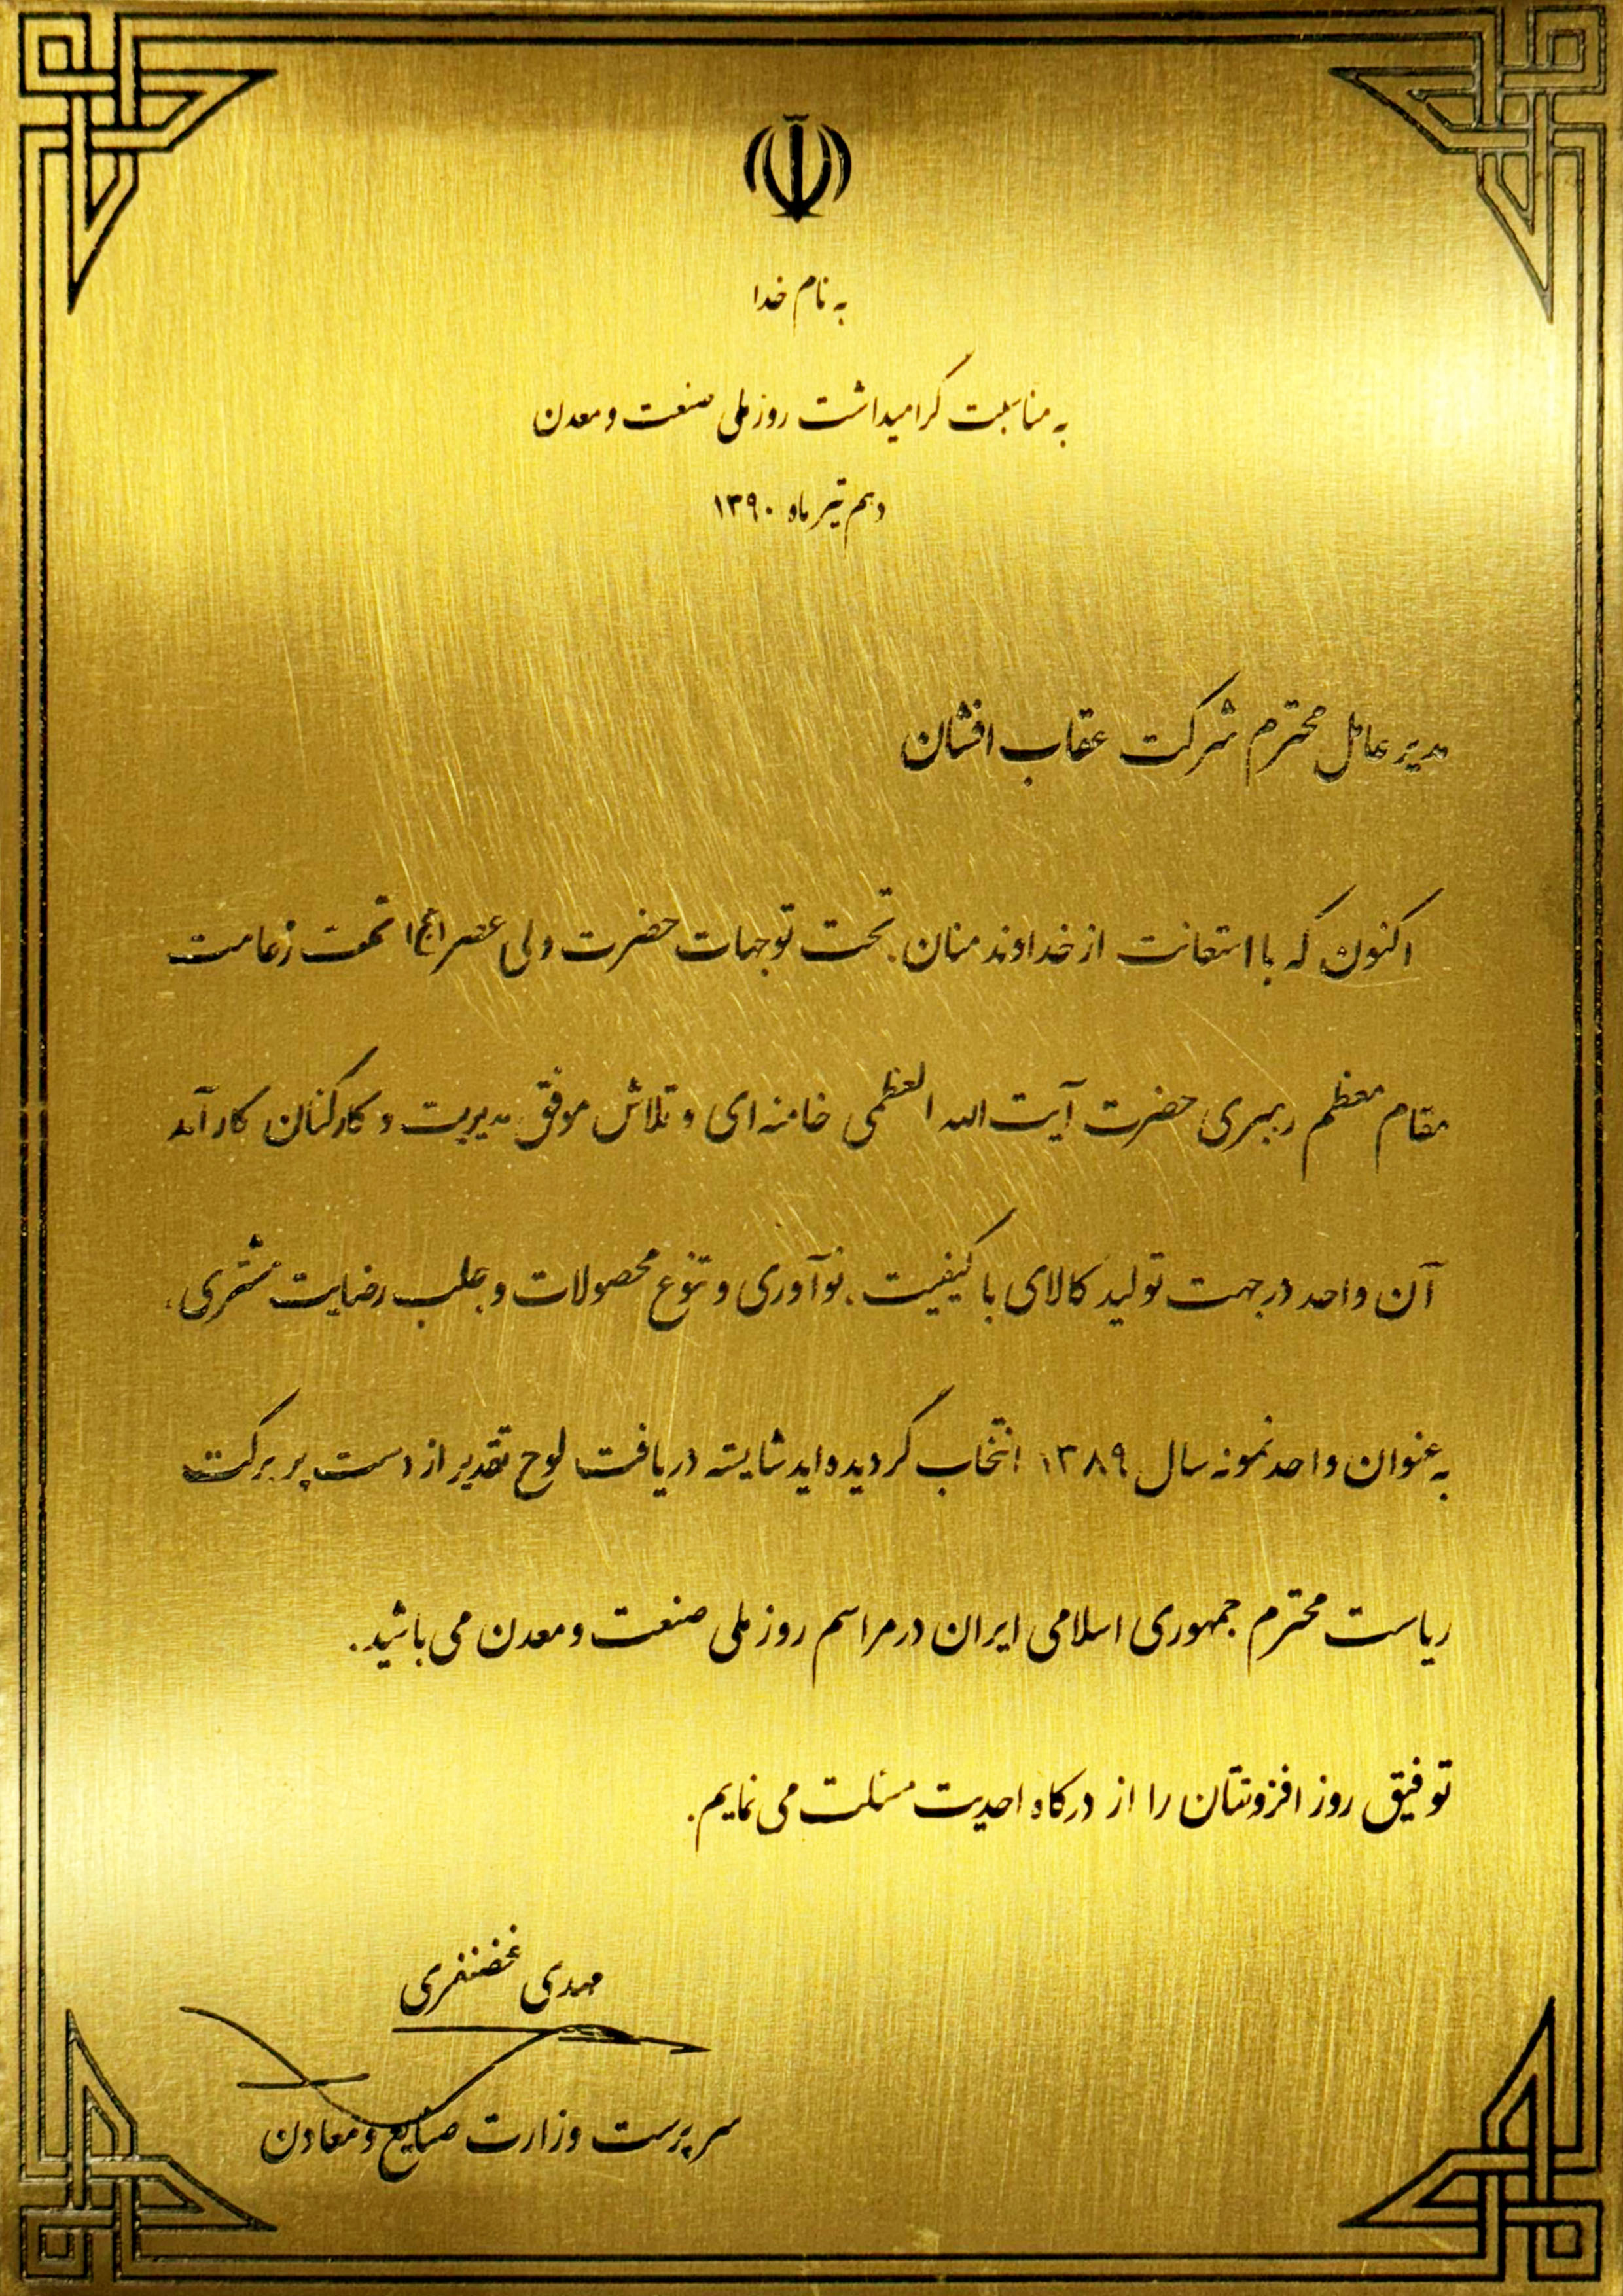 به نام خدا
به مناسبت گرامیداشت روز ملی صنعت و معدن
دهم تیر ماه ۱۳۹۰
مدیر عامل محترم شرکت عقاب افشان
اکنون که با استعانت از خداوند منان، تحت توجهات حضرت ولی عصر (عج) تحت زعامت
مقام معظم رهبری حضرت آیت الله العظمی خامنه ای و تلاش موفق مدیریت و کارکنان کارآمد
آن واحد در جهت تولید کالای با کیفیت، نوآوری و تنوع محصولات و جلب رضایت مشتری،
به عنوان واحد نمونه سال ۱۳۸۹ انتخاب گردیده اید شایسته دریافت لوح تقدیر از دست پر برکت
ریاست محترم جمهوری اسلامی ایران در مراسم روز ملی صنعت و معدن می باشید.
توفیق روز افزونتان را از درگاه احدیت مسئلت می نمایم.
مهدی غضنفری
سرپرست وزارت صنایع و معادن